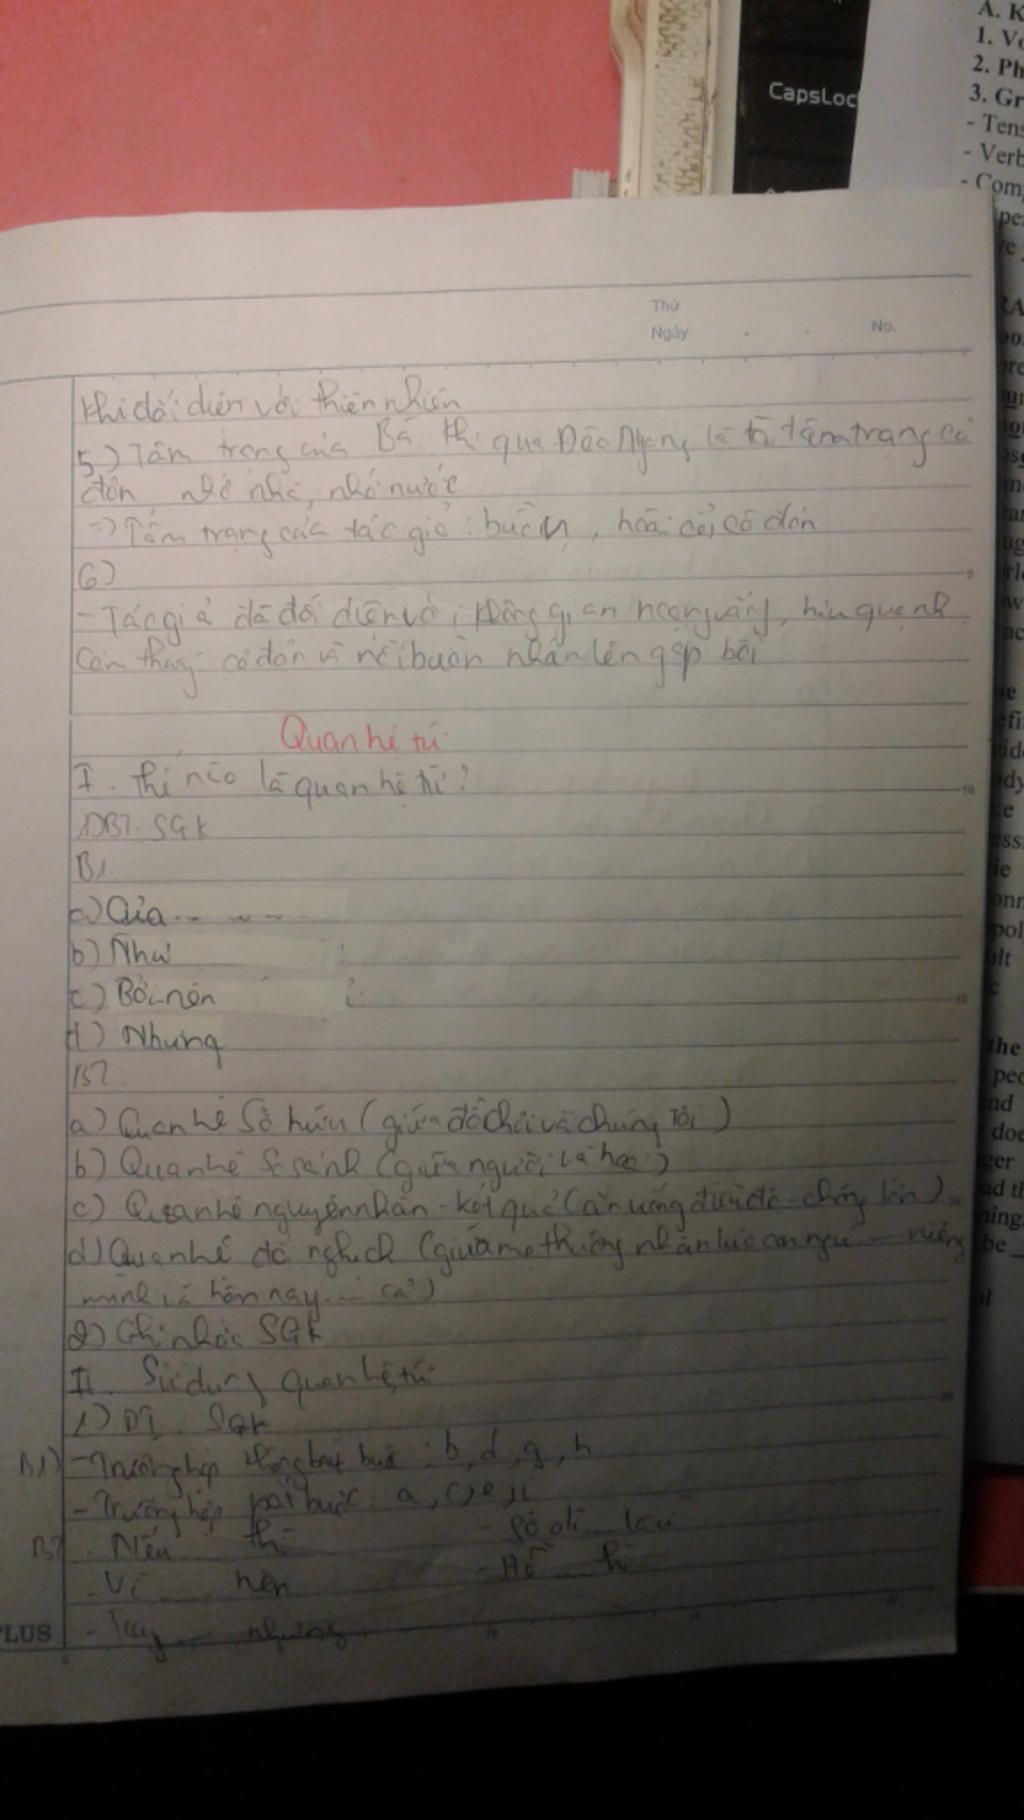 CapsLoc
A. K
1. Vo
2. Ph
3. Gr
- Tens
- Verb
- Com
Thứ
Ngày . .
No.
Khi đối diện với thiên nhiên
5) Tâm trạng của Bà Khi qua Đèo Ngang là tâm trạng cô
đơn, nhớ nhà, nhớ nước
=> Tâm trạng của tác giả : buồn, hoài cổ, cô đơn
6)
- Tác giả đã đối diện với không gian hoang vắng, hiu quạnh
Cảm thấy cô đơn và nỗi buồn nhân lên gấp bội
Quan hệ từ
I. Thế nào là quan hệ từ ?
1) BT. SGK
B1
a) Của ...
b) Như
c) Bởi-nên
d) Nhưng
B2
a) Quan hệ Sở hữu (giữa đồ chơi và chúng Tôi)
b) Quan hệ So sánh (giữa người và hoa)
c) Quan hệ nguyên nhân - kết quả (ăn uống điều độ - chóng lớn)
d) Quan hệ đối nghịch (giữa mẹ thường nhân lúc con ngủ ... riêng
mình và hôm nay ... cả)
2) Ghi nhớ: SGK
II. Sử dụng quan hệ từ
1) BT SGK
B1) - Trường hợp không bắt buộc : b, d, g, h
- Trường hợp bắt buộc : a, c, e, i
B2 - Nếu thì
- Sở dĩ ... là vì
- Vì nên
- Hễ ... thì
- Tuy ... nhưng
PLUS